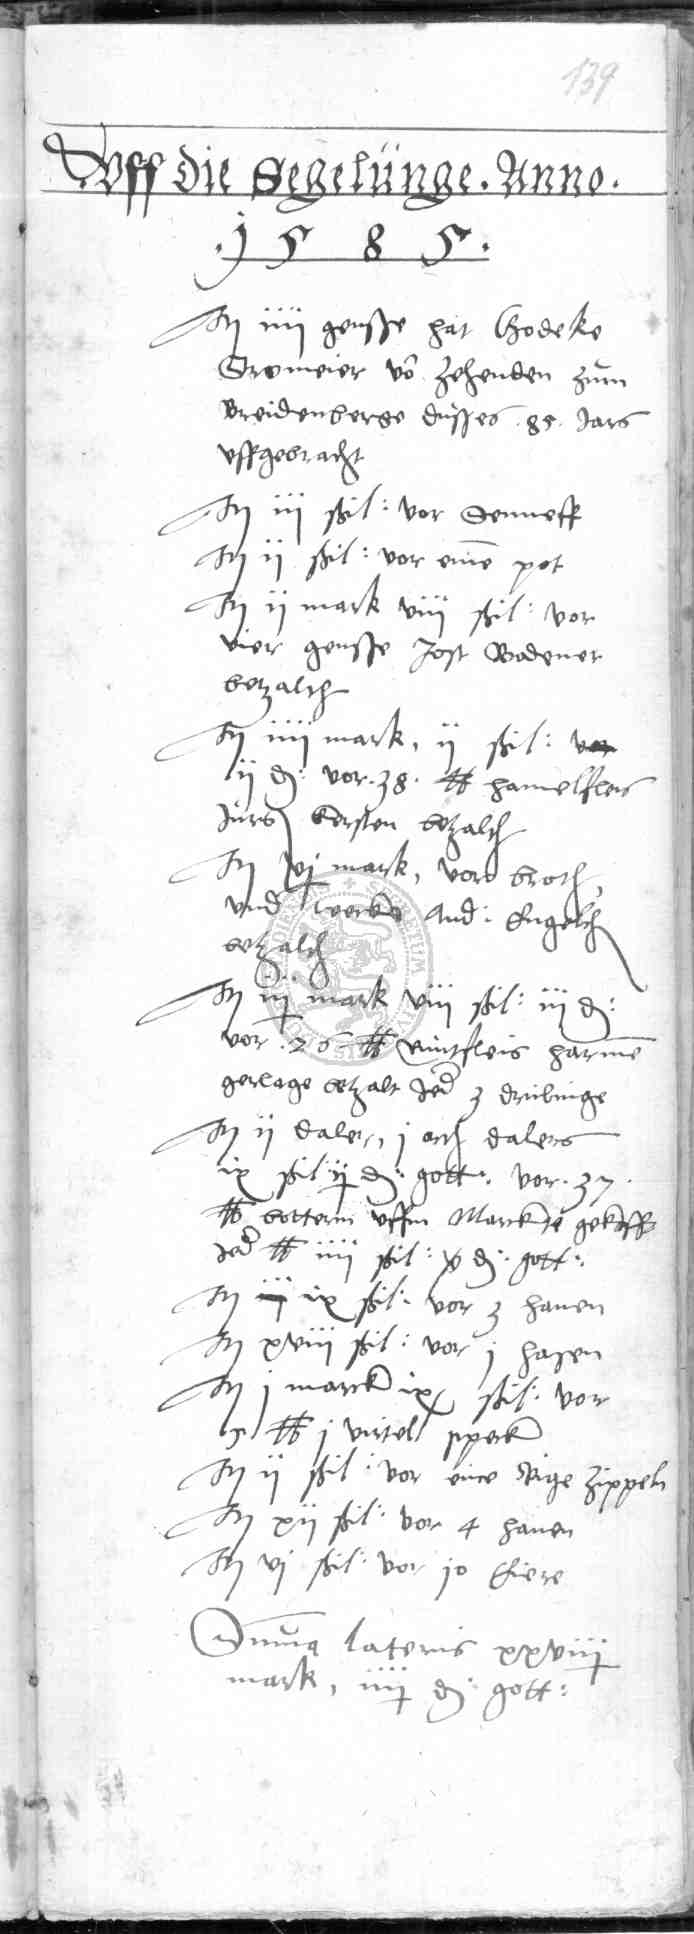 139
Uff die Segelünge. Anno.
.1585.
It iiii gensse hat Godeke
Dromeier vō Zehenden zum
Breidenberge dusses .85. Jars
uffgebracht
It iii ßil: vor Senneff
It ii ßil: vor eine pot
It ii mark viii ßil: vor
vier gensse Jost Bodener
betzalth
It iiii mark, ii ßil:
ii d: vor .38. lb hamelfleis
Jurs Kersten betzalth
It vj mark, vor broth,
und wecke And: Engelch
betzalth
It iii mark viii ßil: iii d:
vor .26. lb rintfleis harme
gerlage betzalt Jed 3 drubinge
It ii daler, j orth dalers
ix ßil ii d: gott: vor .37.
lb botteren uffm Marckte gekofft
Jed lb iiii ßil: d: gott:
It ix ßil: vor 3 hanen
It xviii ßil: vor j hasen
It j marck ix ßil: vor
5 lb j virtel speck
It ii ßil: vor eine stige Zippeln
It xii ßil: vor 4 hanen
It vj ßil: vor 10 Eiere
Suma lateris xxviii
mark, iiii d: gott: